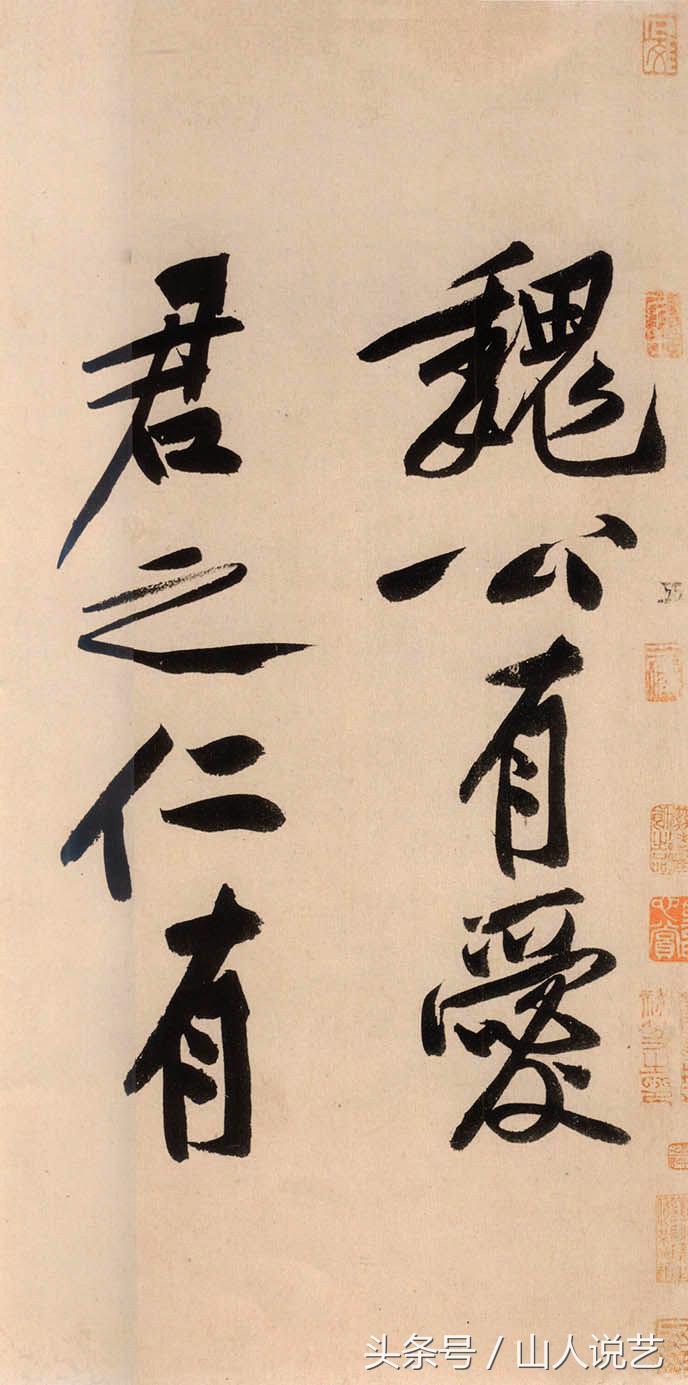 魏公有愛
君之仁有
头条号 / 山人说艺